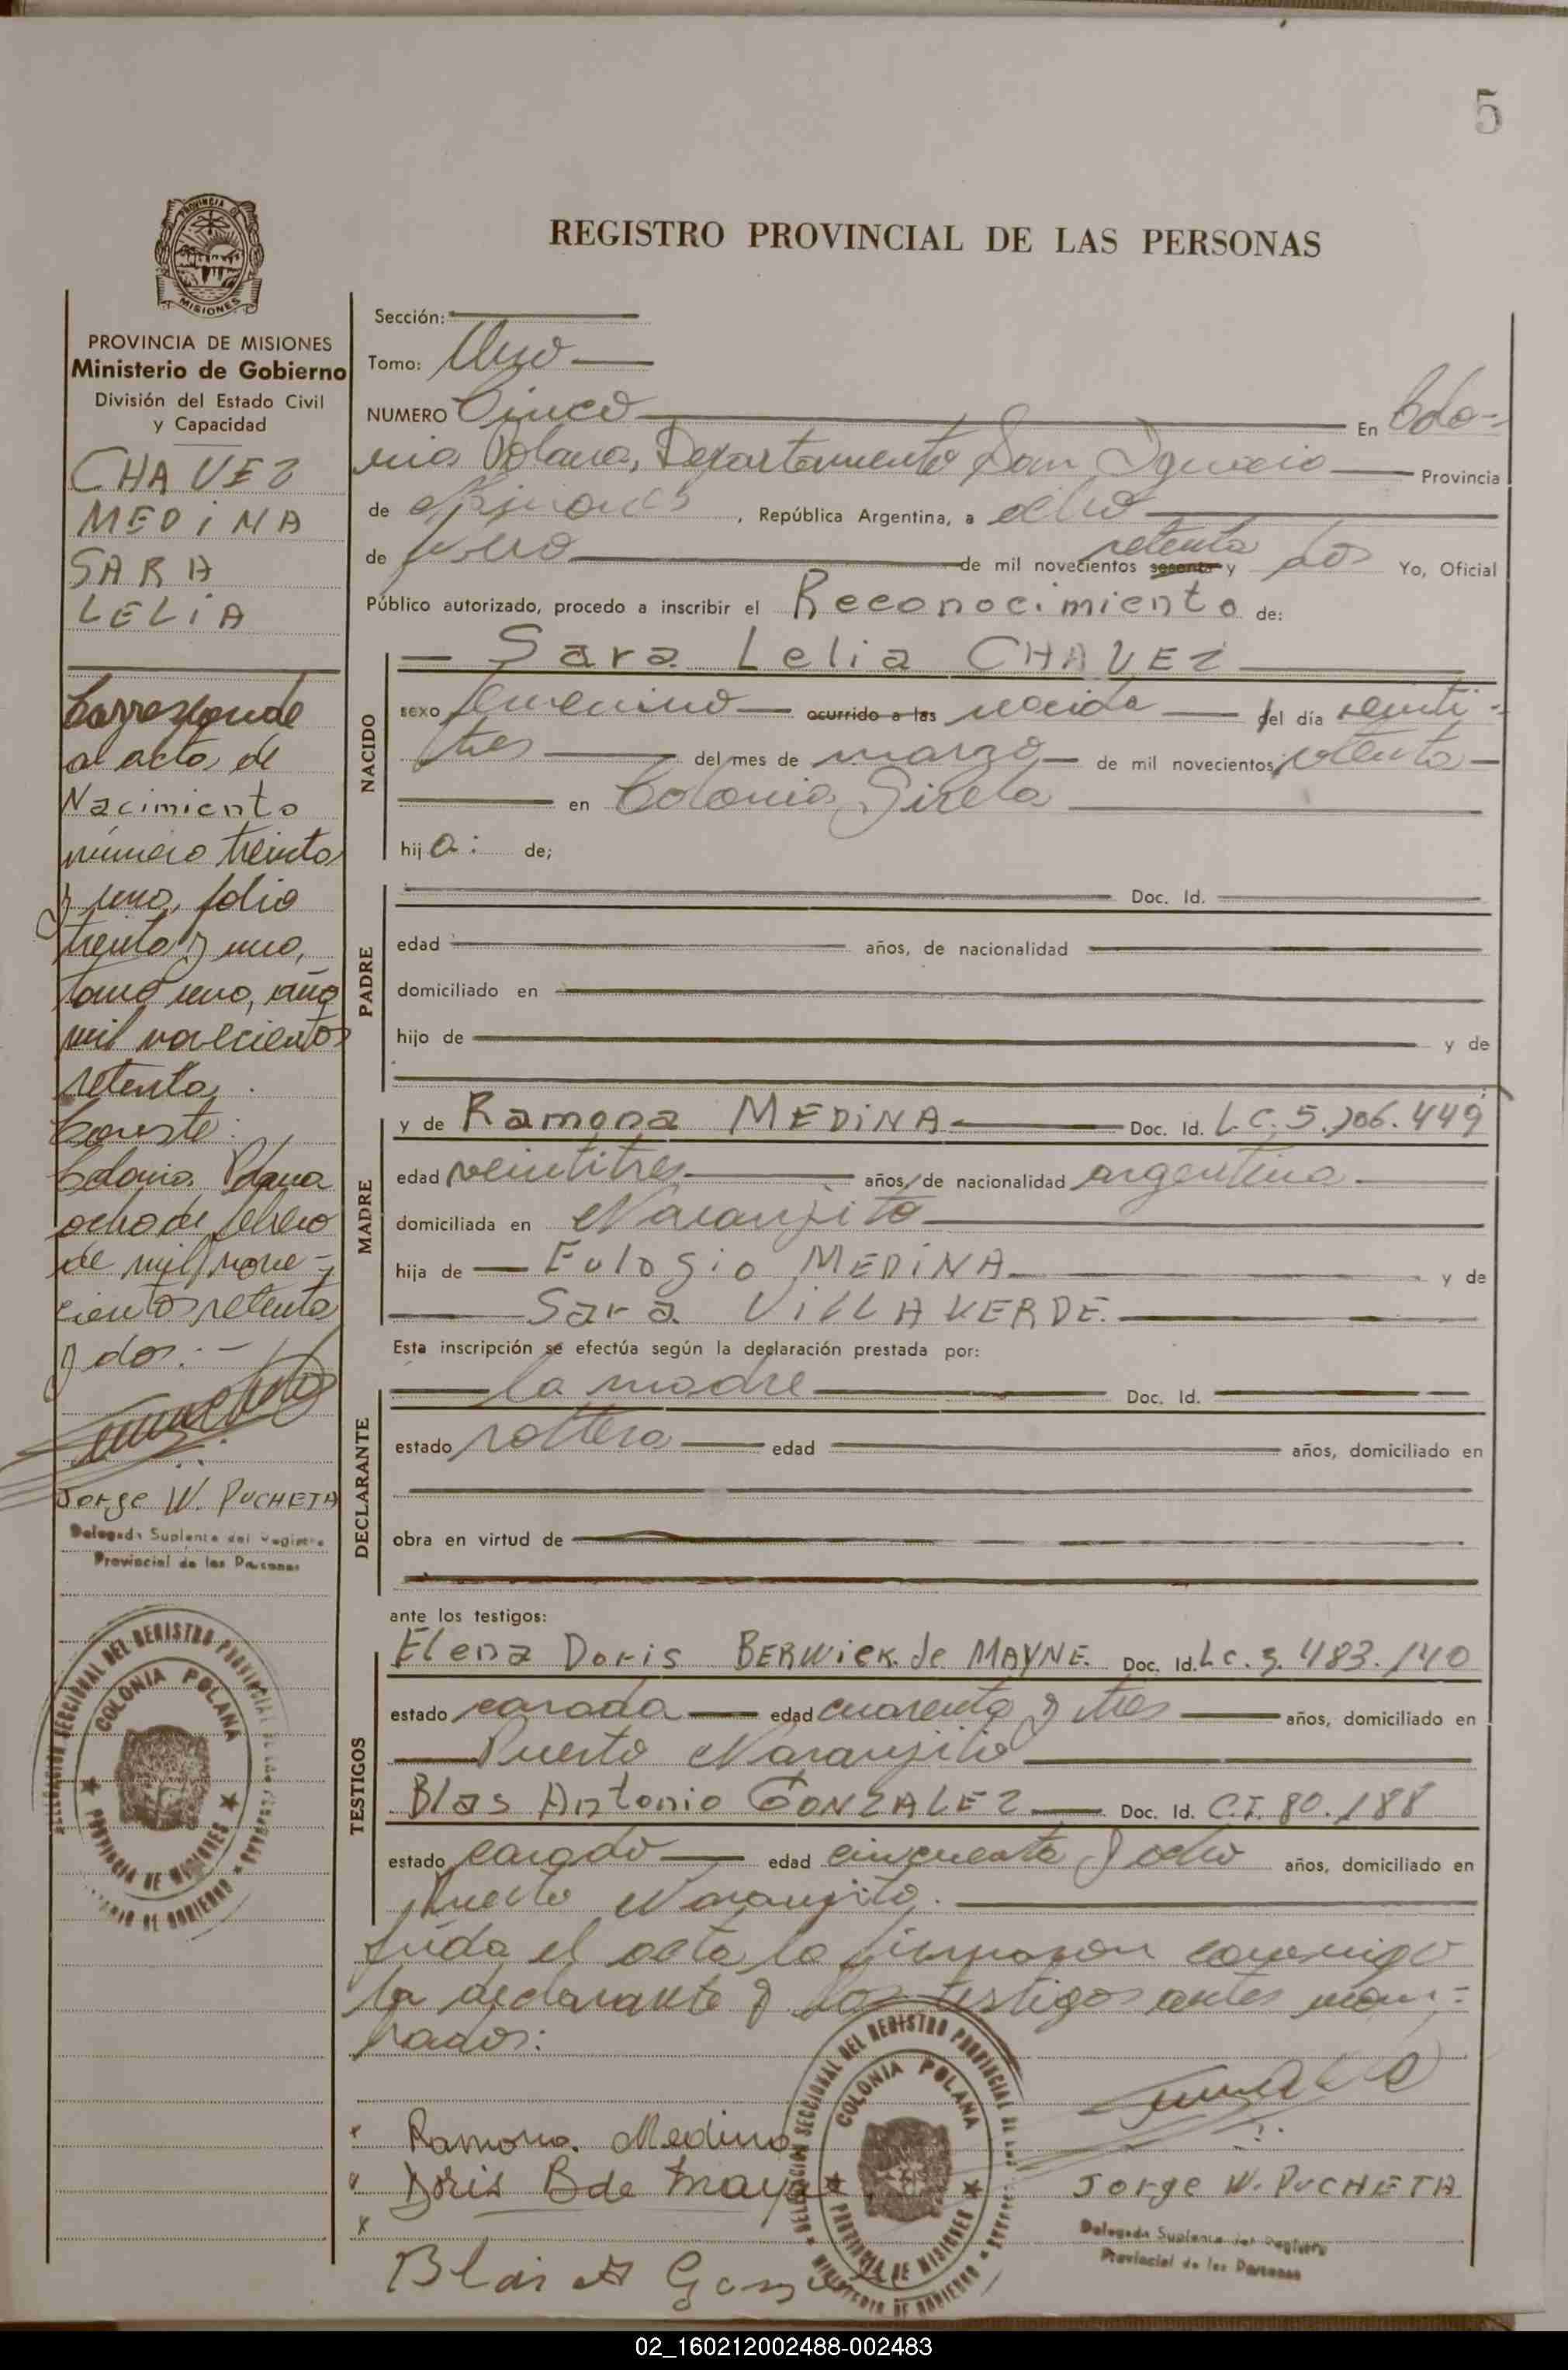 5
REGISTRO PROVINCIAL DE LAS PERSONAS
PROVINCIA DE MISIONES
Ministerio de Gobierno
División del Estado Civil
y Capacidad
CHAVEZ
MEDINA
SARA
LELIA
Corresponde
al acta de
Nacimiento
número treinta
y uno, folio
treinta y uno,
tomo uno, año
mil novecientos
setenta.
Conste:
Colonia Polana
ocho de febrero
de mil nove-
cientos setenta
y dos.-
Jorge W. PUCHETA
Delegado Suplente del Registro
Provincial de las Personas
DELEGACION SECCIONAL DEL REGISTRO PROVINCIAL DE LAS PERSONAS
COLONIA POLANA
PROVINCIA DE MISIONES
MINISTERIO DE GOBIERNO
Sección:
Tomo: Uno
NUMERO Cinco En Colo-
nia Polana, Departamento San Ignacio Provincia
de Misiones, República Argentina, a ocho
setenta
de febrero de mil novecientos sesenta y dos Yo, Oficial
Público autorizado, procedo a inscribir el Reconocimiento de:
Sara Lelia CHAVEZ
NACIDO
sexo femenino ocurrido a las nacida del día veinti-
tres del mes de marzo de mil novecientos setenta
en Colonia Gisela
hija: de;
PADRE
Doc. Id.
edad años, de nacionalidad
domiciliado en
hijo de y de
MADRE
y de Ramona MEDINA Doc. Id. L.C. 5.206.449
edad veintitres años, de nacionalidad argentina
domiciliada en Naranjito
hija de Eulogio MEDINA y de
Sara VILLAVERDE.
Esta inscripción se efectúa según la declaración prestada por:
DECLARANTE
la madre Doc. Id.
estado soltera edad años, domiciliado en
obra en virtud de
ante los testigos:
TESTIGOS
Elena Doris BERWICK de MAYNE. Doc. Id. L.C. 483.140
estado casada edad cuarenta y tres años, domiciliado en
Puerto Naranjito
Blas Antonio GONZALEZ Doc. Id. C.I. 80.188
estado casado edad cincuenta y ocho años, domiciliado en
Puerto Naranjito.
Leida el acta la firmaron conmigo
la declarante y los testigos antes nom-
rados:
Ramona Medina
Doris B de Mayne
Blas A Gonzalez
DELEGACION SECCIONAL DEL REGISTRO PROVINCIAL DE LAS PERSONAS
COLONIA POLANA
PROVINCIA DE MISIONES
MINISTERIO DE GOBIERNO
Jorge W. PUCHETA
Delegado Suplente del Registro
Provincial de las Personas
02_160212002488-002483